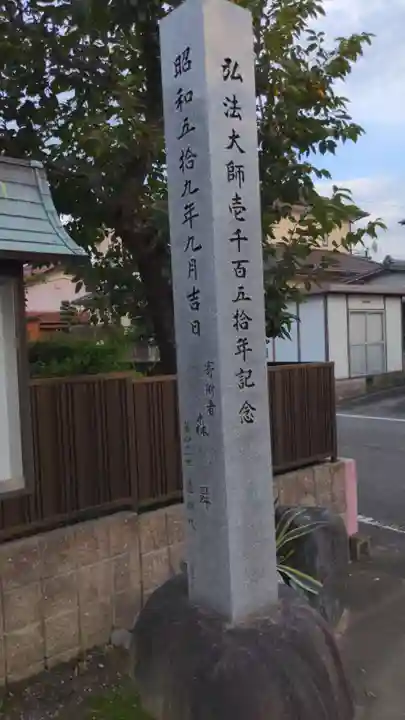 弘法大師壱千百五拾年記念
昭和五拾九年九月吉日
寄附者
森